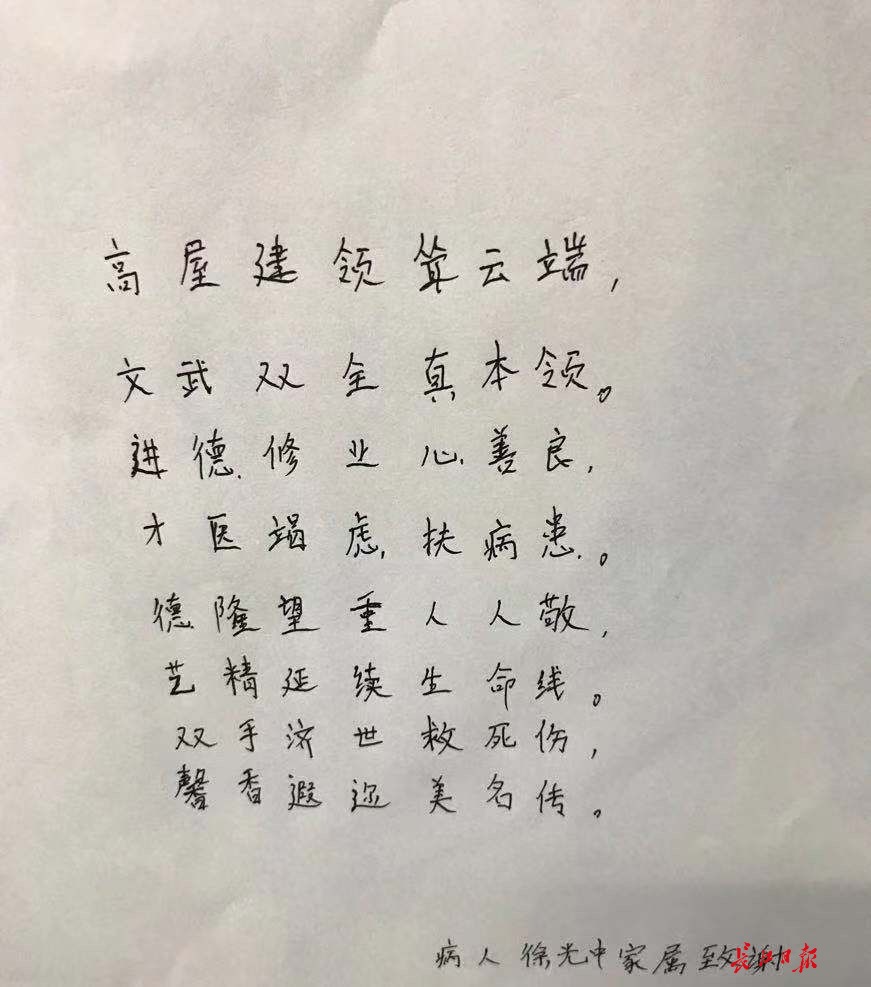 高屋建领耸云端,
文武双全真本领。
进德修业心善良,
才医竭虑扶病患。
德隆望重人人敬,
艺精延续生命线。
双手济世救死伤,
馨香遐迩美名传。
病人徐光中家属致谢
长江日报